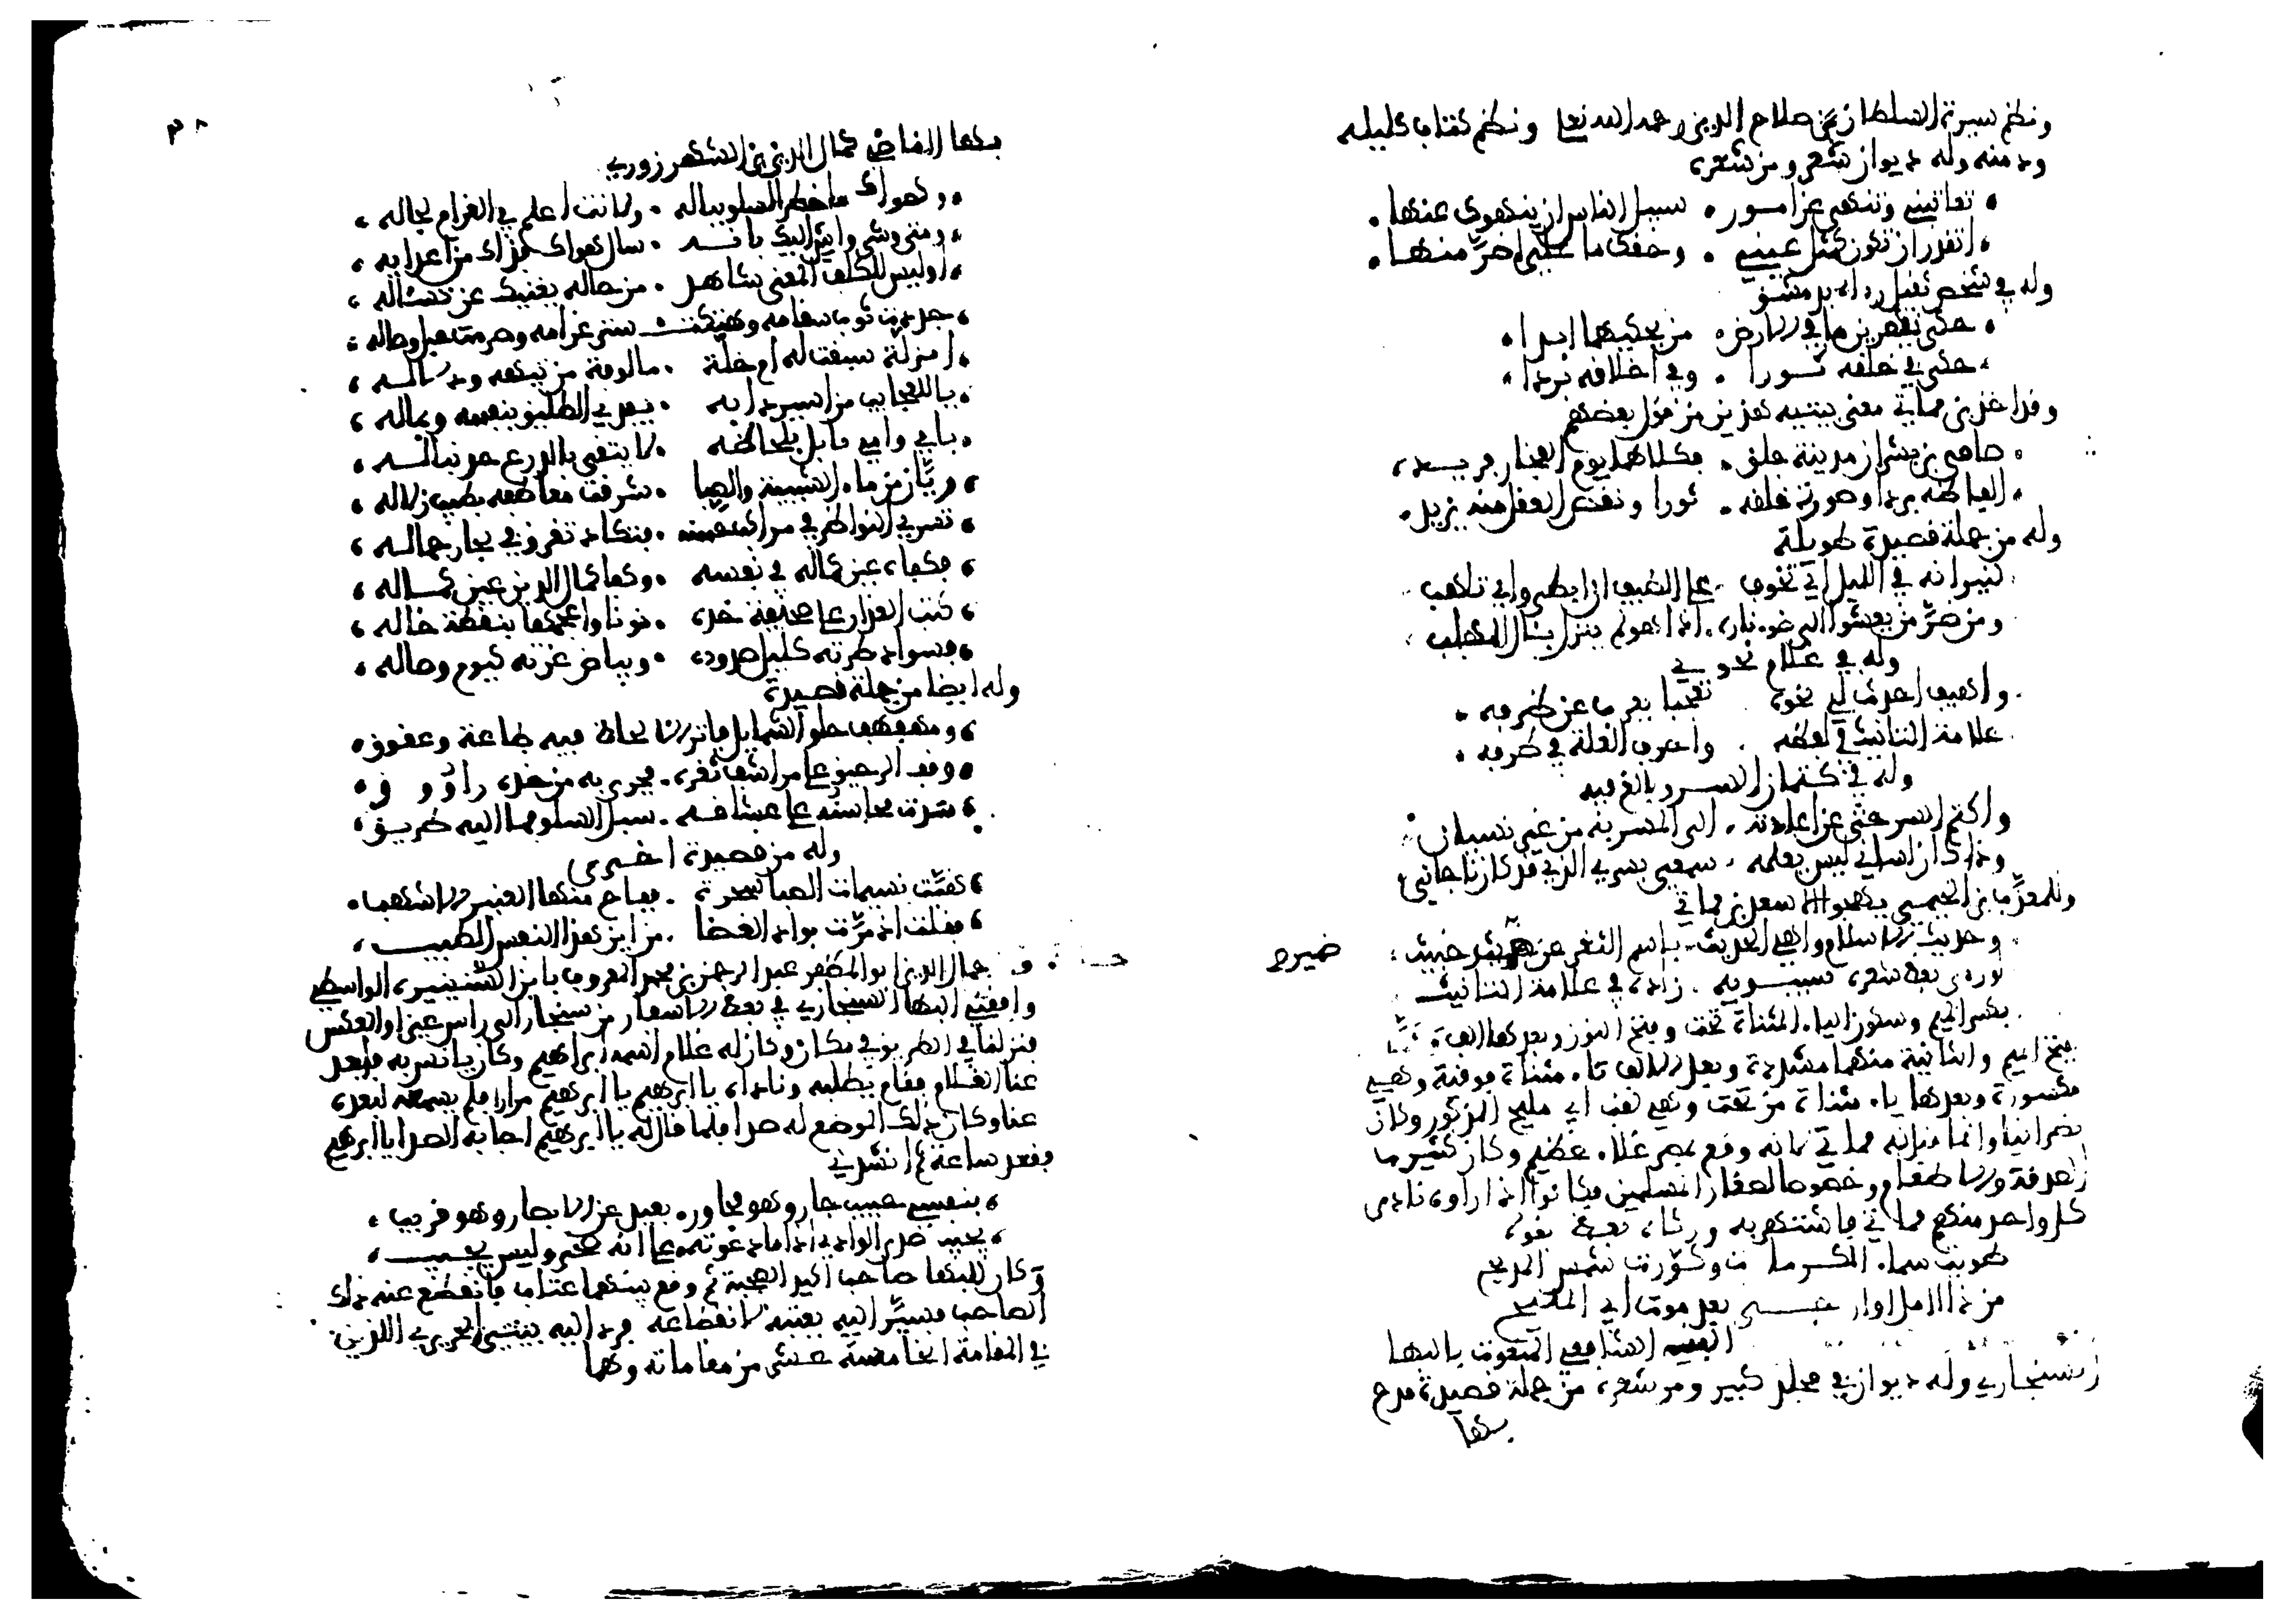 ونظم سيرة السلطان صلاح الدين رحمه الله تعا ونظم كتاب كليلة
ودمنة وله ديوان شعر ومن شعره
تعاتبني وتنهى عن امور . سبيل الناس ان ينهوك عنها
اتقدر ان تكون كمثل عيني . وحقك ما علي اضر منها
وله في شخص ثقيل رءاه بدمشق
حكى نهرين ما في الارض من يحكيهما ابدا
حكى في خلقه ثورا . وفي اخلاقه بردا
وقد اخذ بن مماتي معنى بيتيه هذين من قول بعضهم
ضاهى بن بشران مدينة جلق . فكلاهما يوم الفخار فريد
الفاظه بردا وصورة خلقه . ثورا ونقص العقل منه يزيد
وله من جملة قصيدة طويلة
لنيرانه في الليل اي تحرق . على الضيف ان ابطى واي تلهب
ومن ضر من يعشوا الى ضوء ناره . اذا هو لم ينزل بئال المهلب
وله في غلام نحوي
واهيف احدث لي نحوه تعجبا يعرب عن ظرفه
علامة التانيث في لفظه . واحرف العلة في طرفه
وله في كتمان السر وبالغ فيه
واكتم السر حتى عن اعادته . الى المسر به من غير نسيان
وذاك ان لساني ليس يعلمه . سمعي بسري الذي قد كان ناجاني
وللمعز يهجو اسعد بن مماتي
وحديث الاسلام واهي الحديث . باسم الثغر عن ضمير خبيث
لو رءى بعض شعره سيبويه . زاده في علامة التانيث
بكسر الميم وسكون الياء المثناة تحت وفتح النون وبعدها الف
بفتح الميم والثانية منهما مشددة وبعد الالف تاء مثناة فوقية وهي
مكسورة وبعدها ياء مثناة من تحت وهي لقب ابي مليح المذكور وكان
نصرانيا وانما قيل له مماتي لانه وقع بمصر غلاء عظيم وكان كثير ما
الصدقة والاطعام وخصوصا لصغار المسلمين فكانوا اذا راوه نادى
كل واحد منهم مماتي فاشتهر به ورثاه بعض بقوله
طويت سماء المكرمات وكورت شمس المديح
من ذا اامل او ارجي بعد موت ابي المليح
الفقيه الشافعي المنعوت بالبها
السنجاري وله ديوان في مجلد كبير ومن شعره من جملة قصيدة مدح
بها
ضمير
٣٨
بها القاضي كمال الدين بن الشهرزوري
وهواك ما خطر السلو بباله . ولانت اعلم في الغرام بحاله
ومتى وشى واش اليك بانه . سال هواك فذاك من اعدايه
اوليس للكلف المعنى شاهد . من حاله يغنيك عن تسئاله
جددت ثوب سقامه وهتكت ستر غرامه وصرمت حبل وصاله
ازلة سبقت له ام خلة . مالوفة من تيهه ودلاله
يا للعجايب من اسير دابه . يفدي الطليق بنفسه وبماله
بابي وامي نابل بلحاظه . لا يتقي بالدرع حد نباله
ريان من ماء الشبيبة والصبا . شرقت معاطفه بطيب زلاله
تسري النواظر في مراكب حسنه . فتكاد تغرق في بحار جماله
فكفاه عين كماله في نفسه . وكفا كمال الدين عين كماله
كتب العذار على صحيفة خده . نونا واعجمها بنقطة خاله
فسواد طرته كليل صدوده . وبياض غرته كيوم وصاله
وله ايضا من جملة قصيدة
ومهفهف حلو الشمايل فاتر الالحاظ فيه طاعة وعقوق
وقف الرحيق على مراشف ثغره . فجرى به من خده راووق
سدت محاسنه على عشاقه . سبل السلو فما اليه طريق
وله من قصيدة اخرى
هبت نسيمات الصبا سحرة . ففاح منها العنبر الاشهب
فقلت اذ مرت بوادي الغضا . من اين هذا النفس الطيب
جمال الدين ابو المظفر عبد الرحمن بن محمد المعروف بابن السنينيرة الواسطي
وافقني البها السنجاري في بعض الاسفار من سنجار الى راس عين او العكس
فنزلنا في الطريق في مكان وكان له غلام اسمه ابراهيم وكان يانس به فابعد
عنا الغلام فقام يطلبه وناداه يا ابرهيم يا ابرهيم مرارا فلم يسمعه لبعده
عنا وكان ذلك الموضع له صدا فلما قال له يا ابرهيم اجابه الصدا يا ابرهيم
فقعد ساعة ثم انشدني
بنفسي حبيب جار وهو مجاور . بعيد عن الابصار وهو قريب
يجيب صدى الوادي اذا ما دعوته . على انه صخر وليس يجيب
وكان للبها صاحب اكيد الصحبة ثم وقع بينهما عتاب فانقطع عنه ذلك
الصاحب فسير اليه يعتبه لانقطاعه فرد اليه بيتي الحريري اللذين
في المقامة الخامسة عشر من مقاماته وهما